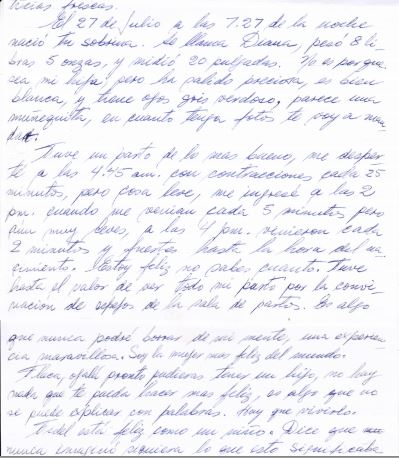 ticias frescas.
El 27 de Julio a las 7.27 de la noche
nació tu sobrina. Se llama Diana, pesó 8 li-
bras 5 onzas, y midió 20 pulgadas. No es porque
sea mi hija, pero ha salido preciosa, es bien
blanca, y tiene ojos gris verdoso, parece una
muñequita, en cuanto tenga fotos te voy a man-
dar.
Tuve un parto de lo mas bueno, me desper-
té a las 4.45 am. con contracciones cada 25
minutos, pero cosa leve, me ingresé a las 2
pm. cuando me venían cada 5 minutos pero
aun muy leves, a las 4 pm. vinieron cada
2 minutos y fuertes hasta la hora del na-
cimiento. Estoy feliz no sabes cuanto. Tuve
hasta el valor de ver todo mi parto por la convi-
nación de espejos de la sala de partos. Es algo
que nunca podré borrar de mi mente, una experien-
cia maravillosa. Soy la mujer mas feliz del mundo.
Flaca, ojalá pronto pudieras tener un hijo, no hay
nada que te pueda hacer mas feliz, es algo que no
se puede explicar con palabras. Hay que vivirlo.
Fidel está feliz como un niño. Dice que
nunca imaginó siquiera lo que esto significaba